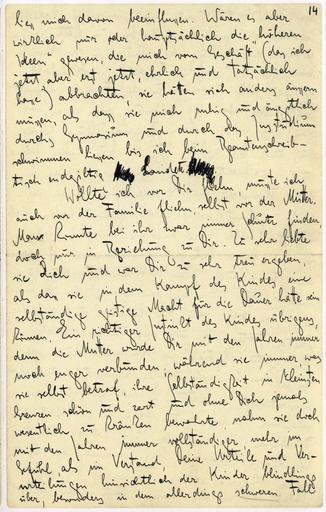 14
ließ mich davon beeinflussen. Wären es aber
wirklich nur oder hauptsächlich die höheren
"Ideen" gewesen, die mich vom Geschäft (das ich
jetzt aber erst jetzt, ehrlich und tatsächlich
hasse) abbrachten, sie hätten sich anders äußern
müssen, als daß sie mich ruhig und ängstlich
durchs Gymnasium und durch das Jusstudium
schwimmen ließen bis ich beim Beamtenschreib-
tisch endgiltig landete.
Wollte ich vor Dir fliehn, mußte ich
auch vor der Familie fliehn, selbst vor der Mutter.
Man konnte bei ihr zwar immer Schutz finden
doch nur in Beziehung zu Dir. Zu sehr liebte
sie Dich und war Dir zu sehr treu ergeben,
als daß sie in dem Kampf des Kindes eine
selbständige geistige Macht für die Dauer hätte sein
können. Ein richtiger Instinkt des Kindes übrigens,
denn die Mutter wurde Dir mit den Jahren immer
noch enger verbunden, während sie immer was
sie selbst betraf, ihre Selbständigkeit in kleinsten
Grenzen schön und zart und ohne Dich jemals
wesentlich zu kränken bewahrte, nahm sie doch
mit den Jahren immer vollständiger mehr im
Gefühl als im Verstand, Deine Urteile und Ver-
urteilungen hinsichtlich der Kinder blindlings
über, besonders in dem allerdings schweren Fall